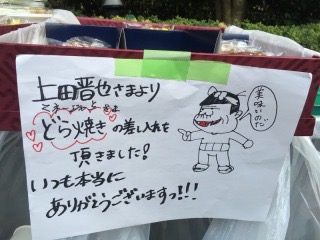 上田晋也さまより
どら焼きの差し入れを
頂きました!
いつも本当に
ありがとうございますっ!!!
美味いのだ